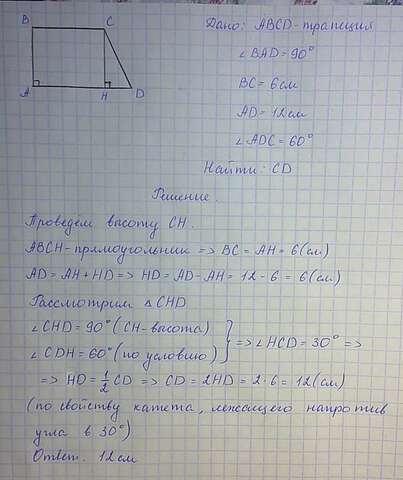 B C
A H D
Дано: ABCD-трапеция
∠BAD=90°
BC=6см
AD=12см
∠ADC=60°
Найти: CD
Решение.
Проведём высоту CH.
ABCH-прямоугольник => BC=AH=6(см)
AD=AH+HD => HD=AD-AH=12-6=6(см)
Рассмотрим △CHD
∠CHD=90°(CH-высота)
∠CDH=60°(по условию) } => ∠HCD=30° =>
=> HD=1/2CD => CD=2HD=2·6=12(см)
(по свойству катета, лежащего напротив
угла в 30°)
Ответ. 12см